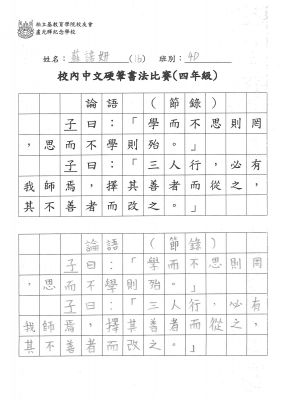 柏立基教育學院校友會
盧光輝紀念學校
姓名：蘇諾妍 (16) 班別：4D
校內中文硬筆書法比賽(四年級)
論語（節錄）
子曰：「學而不思則罔
，思而不學則殆。」
子曰：「三人行，必有
我師焉，擇其善者而從之，
其不善者而改之。」
論語（節錄）
子曰：「學而不思則罔
，思而不學則殆。」
子曰：「三人行，必有
我師焉，擇其善者而從之，
其不善者而改之。」